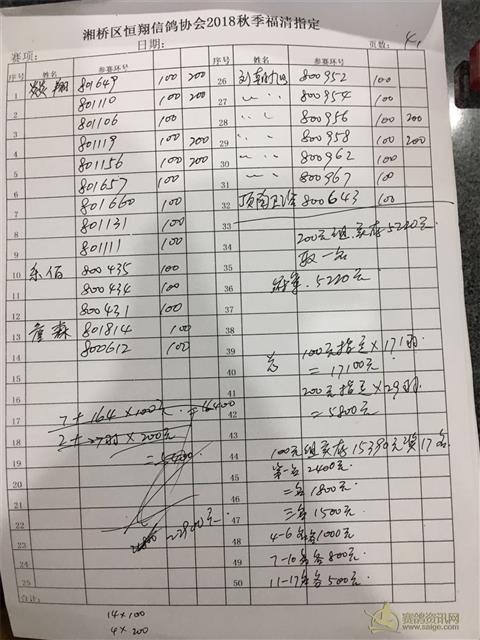 湘桥区恒翔信鸽协会2018秋季福清指定
赛项: 日期: 页数: 4
序号 姓名 参赛环号 序号 姓名 参赛环号
1 翔 801649 100 200
2 801110 100 200
3 801106 100
4 801119 100 200
5 801156 100 200
6 801657 100
7 801660 100
8 801131 100
9 801111 100
10 东佰 800435 100
11 800434 100
12 800431 100
13 詹森 801814 100
14 800612 100
15
16
17
18
19
20
21
22
23
24
25
合计:
26 800952 100
27 〃 〃 800954 100
28 〃 〃 800956 100 200
29 〃 〃 800958 100 200
30 〃 〃 800962 100
31 〃 〃 800967 100
32 800643 100
33
34 200元组实存5220元
35 取一名
36 冠军:5220元
37
38
39 共 100元指定×171羽
40 =17100元
41 200元指定×29羽
42 =5800元
43
44 100元组实存15390元奖17名
45 第一名2400元
46 二名1800元
47 三名1500元
48 4-6名各1000元
49 7-10名各800元
50 11-17名各500元
7+164×100元=16400
2+27羽×200元
=5400
22900元
14×100
4×200
赛鸽资讯网
www.saige.com